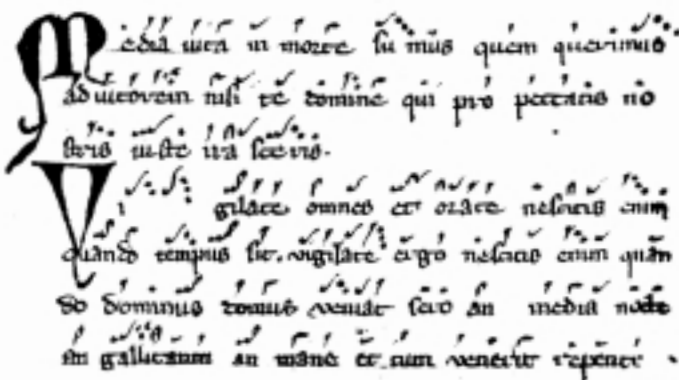 Media uita in morte su mus quem querimus
adiutorem nisi te domine qui pro peccatis no
stris iuste ira sceris.
Vi gilate omnes et orate nescitis enim
quando tempus sit. vigilate ergo nescitis enim quan
do dominus domus veniat sero an media nocte
an gallicantum an mane et cum venerit repente